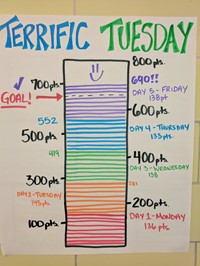 TERRIFIC TUESDAY
800pts.
690!!
✓ 700pts.
GOAL!
DAY 5 - FRIDAY
138pt
600pts.
552
DAY 4 - THURSDAY
133pts.
500pts.
419
400pts.
DAY 3 - WEDNESDAY
138
300pts.
281
DAY 2 - TUESDAY
145pts
200pts.
DAY 1 - MONDAY
136 pts
100pts.